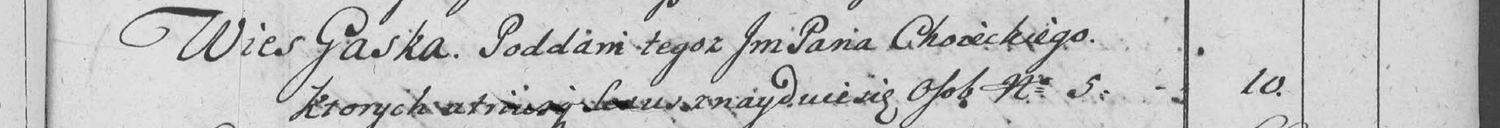 Wies Gaska. Poddani tegoz Jm Pana Choieckiego.
ktorych utriusq Sexus znayduie się Osob Nº 5. 10.